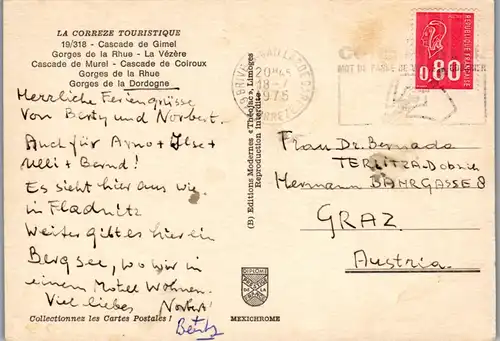 LA CORREZE TOURISTIQUE
19/318 - Cascade de Gimel
Gorges de la Rhue - La Vézère
Cascade de Murel - Cascade de Coiroux
Gorges de la Rhue
Gorges de la Dordogne
Herzliche Feriengrüsse
von Berty und Norbert.
Auch für Arno + Ilse +
Ulli + Bernd!
Es sieht hier aus wie
in Fladnitz
Weiter gibt es hier ein
Bergsee, wo wir in
einem Motel wohnen.
Viel liebes Norbert!
Berty
Collectionnez les Cartes Postales !
(B) Editions Modernes « Théojac », Limoges
Reproduction interdite
DIPLOME
MEXICHROME
20H45
18-
1976
CORREZE
REPUBLIQUE FRANÇAISE
0,80
Frau Dr. Bernada
TERLITZA-Dobnik
Hermann BAHRGASSE 8
GRAZ
Austria